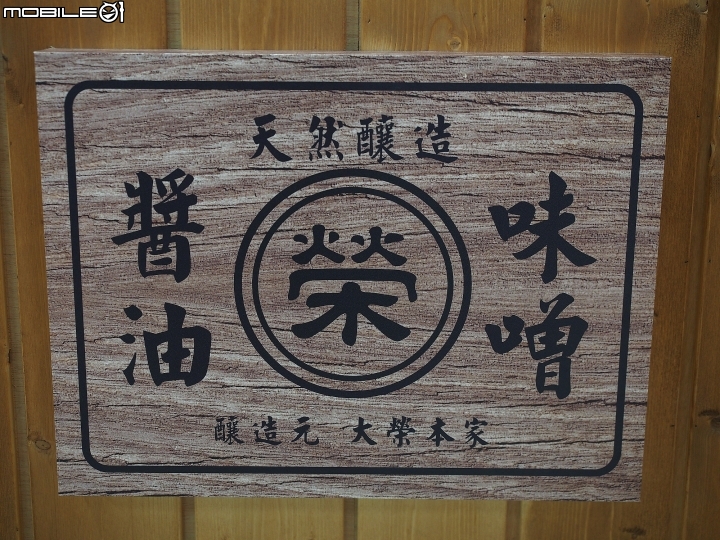 MOBILE01
天然釀造
味噌
榮
醬油
釀造元 大榮本家